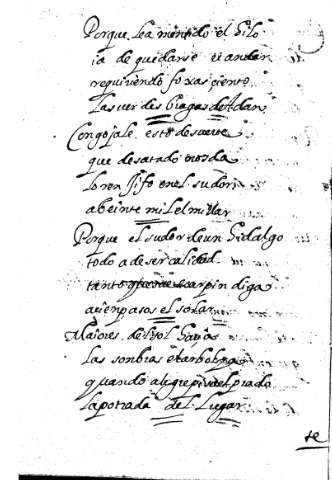 Porque Lea mentido el Silo
ia de quedarse el andar
requiriendo foxas ciento
Las verdes bragas de Adan
Congojale esto de suerte
que desatado nos da
loren Jifo en el sudor
a beinte mil el millar
Porque el sudor de un Gidalgo
todo a de ser calidad
tanto carpin diga
quien pasos el solar
Maiores del sol
Las sonbras
y quando alegre pisa el prado
la potrada del Lugar
te